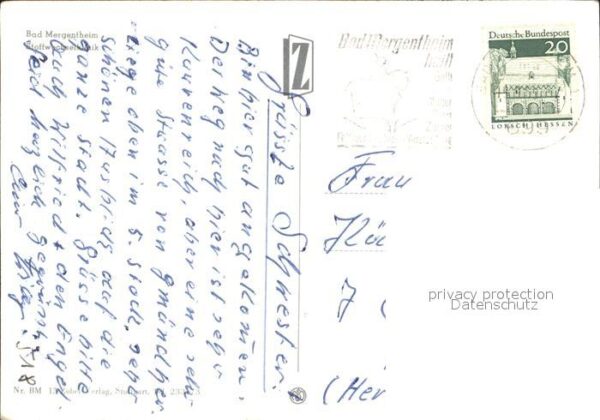 Bad Mergentheim
Stoffwechselklinik
Grüssle Schwester!
Bin hier gut angekommen,
Der Weg nach hier ist sehr
Kurvenreich, aber eine sehr
gute Strasse von Gmünd her.
Liege oben im 5. Stock, habe
schönen Ausblick auf die
ganze Stadt. Grüsse bitte
auch Wilfried + den
Seid herzlich
Nr. BM
Z
Bad Mergentheim
heilt
Galle
Deutsche Bundespost
20
LORSCH/HESSEN
Frau
(Her
privacy protection
Datenschutz